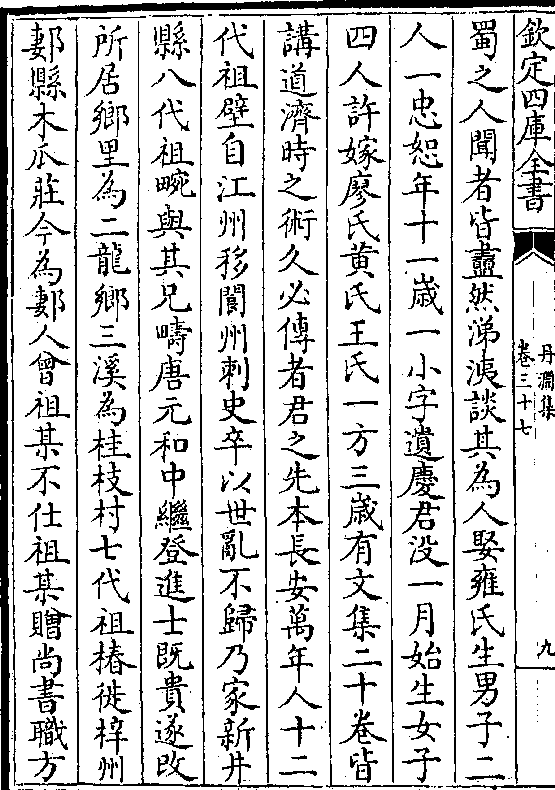 欽定四庫全書
丹淵集
卷三十七
九
蜀之人聞者皆衋然涕洟談其為人娶雍氏生男子二
人一忠恕年十一歳一小字遺慶君没一月始生女子
四人許嫁廖氏黄氏王氏一方三歳有文集二十卷皆
講道濟時之術久必傳者君之先本長安萬年人十二
代祖壁自江州移閬州刺史卒以世亂不歸乃家新井
縣八代祖畹與其兄疇唐元和中繼登進士既貴遂改
所居鄉里為二龍鄉三溪為桂枝村七代祖椿徙梓州
郪縣木瓜莊今為郪人曾祖某不仕祖某贈尚書職方